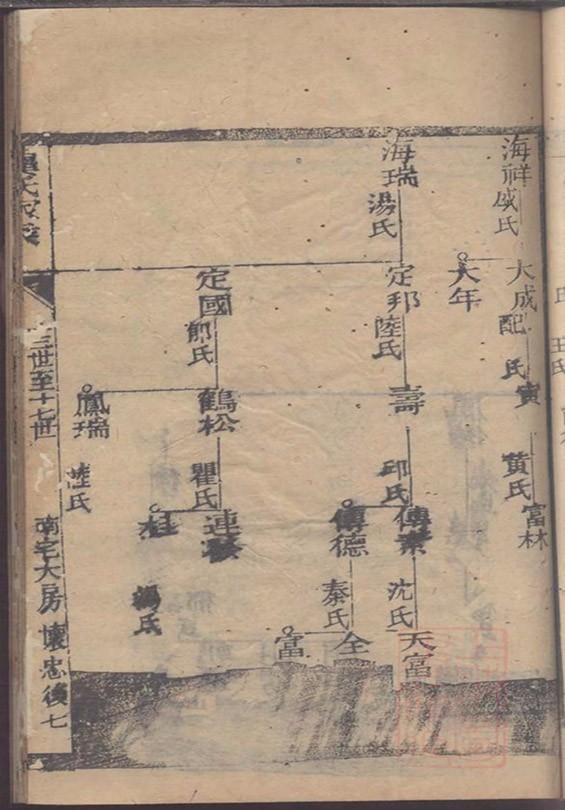 海祥
戚氏
大成
配 氏
寅
黃氏
富林
大年
海瑞
湯氏
定邦
陸氏
壽
邱氏
傳
沈氏
天富
傳德
秦氏
全
富
定國
鶴松
瞿氏
連
楊氏
鳳瑞
陸氏
三世至十七世
南宅大房 懷忠後 七